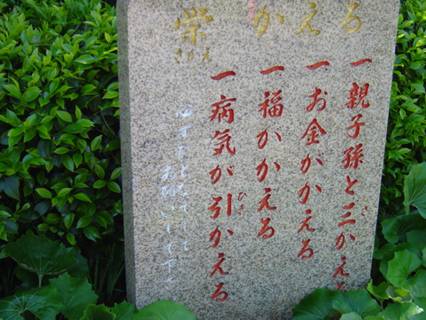 栄かえる
一親子孫と三かえる
一お金がかえる
一福がかえる
一病気が引かえる